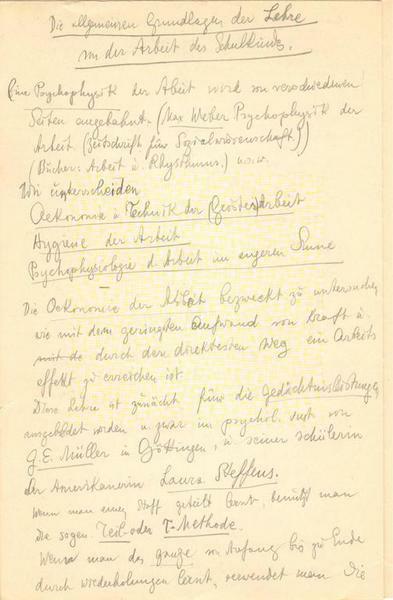 Die allgemeinen Grundlagen der Lehre
von der Arbeit des Schulkinds.
Eine Psychophysik der Arbeit wird von verschiedenen
Seiten angebahnt. (Max Weber Psychophysik der
Arbeit. (Zeitschrift für Sozialwissenschaft))
(Bücher: Arbeit u. Rhythmus.) usw.
Wir unterscheiden
Oekonomie u Technik der (Geistes)arbeit
Hygiene der Arbeit
Psychophysiologie d. Arbeit im engeren Sinne
Die Oekonomie der Arbeit bezweckt zu untersuchen
wie mit dem geringsten Aufwand von Kraft u.
durch den direktesten Weg ein Arbeits
effekt zu erreichen ist.
Diese Lehre ist zunächst für die Gedächtnisleistungen
ausgebildet worden u zwar im psychol. Inst von
G.E. Müller in Göttingen, u seiner schülerin
der Amerikanerin Laura Steffens.
Wenn man einen Stoff geteilt lernt, benützt man
die sogen. Teil- oder T-Methode.
Wenn man das ganze von Anfang bis zu Ende
durch wiederholungen lernt, verwendet man die